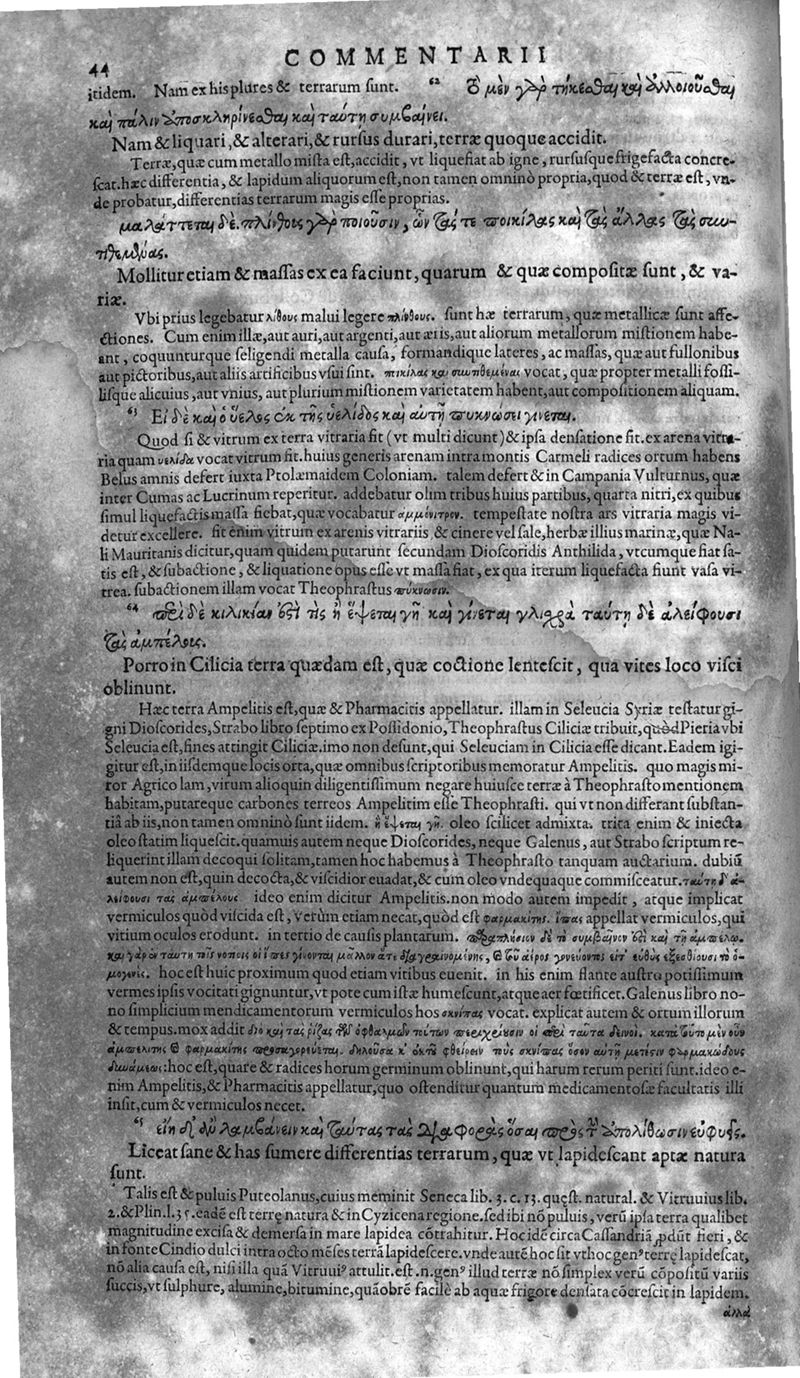 44
COMMENTARII
itidem. Nam ex his plures & terrarum sunt. 62 Τὸ μὲν γὰρ τήκεσθαι καὶ ἀλλοιοῦσθαι
καὶ πάλιν ἀποσκληρύνεσθαι καὶ ταύτῃ συμβαίνει.
Nam & liquari, & alterari, & rursus durari, terræ quoque accidit.
Terræ, quæ cum metallo mista est, accidit, vt liquefiat ab igne, rursusque frigefacta concre-
scat. hæc differentia, & lapidum aliquorum est, non tamen omninò propria, quod & terræ est, vn-
de probatur, differentias terrarum magis esse proprias.
μαλάττεται δέ. πλίνθους γὰρ ποιοῦσιν, ὧν τάς τε ποικίλας καὶ τὰς ἄλλας τὰς συν-
τιθεμένας.
Mollitur etiam & massas ex ea faciunt, quarum & quæ compositæ sunt, & va-
riæ.
Vbi prius legebatur λίθους malui legere πλίνθους. sunt hæ terrarum, quæ metallicæ sunt affe-
ctiones. Cum enim illæ, aut auri, aut argenti, aut æris, aut aliorum metallorum mistionem habe-
ant, coquunturque seligendi metalla causa, formandique lateres, ac massas, quæ aut fullonibus
aut pictoribus, aut aliis artificibus vsui sint. ποικίλας καὶ συντιθεμένας vocat, quæ propter metalli fossi-
lisque alicuius, aut vnius, aut plurium mistionem varietatem habent, aut compositionem aliquam.
63 Εἰ δὲ καὶ ὁ ὕελος ἐκ τῆς ὑελίδος καὶ αὐτὴ πυκνώσει γίνεται.
Quod si & vitrum ex terra vitraria fit (vt multi dicunt) & ipsa densatione fit. ex arena vitra-
ria quam υελιδα vocat vitrum fit. huius generis arenam intra montis Carmeli radices ortum habens
Belus amnis defert iuxta Ptolæmaidem Coloniam. talem defert & in Campania Vulturnus, quæ
inter Cumas ac Lucrinum reperitur. addebatur olim tribus huius partibus, quarta nitri, ex quibus
simul liquefactis massa fiebat, quæ vocabatur αμμόνιτρον. tempestate nostra ars vitraria magis vi-
detur excellere. fit enim vitrum ex arenis vitrariis, & cinere vel sale, herbæ illius marinæ, quæ Na-
li Mauritanis dicitur, quam quidem putarunt secundam Dioscoridis Anthilida, vtcumque fiat sa-
tis est, & subactione, & liquatione opus esse vt massa fiat, ex qua iterum liquefacta fiunt vasa vi-
trea. subactionem illam vocat Theophrastus πύκνωσιν.
64 περὶ δὲ κιλικίαν ἐστὶ τὶς ἣ ἕψεται γῆ καὶ γίνεται γλισχρὰ ταύτῃ δὲ ἀλείφουσι
τὰς ἀμπέλους.
Porro in Cilicia terra quædam est, quæ coctione lentescit, qua vites loco visci
oblinunt.
Hæc terra Ampelitis est, quæ & Pharmacitis appellatur. illam in Seleucia Syriæ testatur gi-
gni Dioscorides, Strabo libro septimo ex Possidonio, Theophrastus Ciliciæ tribuit, quòd Pieria vbi
Seleucia est, fines attingit Ciliciæ. imo non desunt, qui Seleuciam in Cilicia esse dicant. Eadem igi-
gitur est, in iisdemque locis orta, quæ omnibus scriptoribus memoratur Ampelitis. quo magis mi-
ror Agricolam, virum alioquin diligentissimum negare huiusce terræ à Theophrasto mentionem
habitam, putareque carbones terreos Ampelitim esse Theophrasti. qui vt non differant substan-
tiâ ab iis, non tamen omninò sunt iidem. ἣ ἕψεται γῆ. oleo scilicet admixta. trita enim & iniecta
oleo statim liquescit. quamuis autem neque Dioscorides, neque Galenus, aut Strabo scriptum re-
liquerint illam decoqui solitam, tamen hoc habemus à Theophrasto tanquam auctarium. dubiũ
autem non est, quin decocta, & viscidior euadat, & cum oleo vndequaque commisceatur. ταύτῃ δ' ἀ-
λείφουσι τας ἀμπέλους ideo enim dicitur Ampelitis. non modo autem impedit, atque implicat
vermiculos quòd viscida est, verùm etiam necat, quòd est φαρμακίτης. ἶπας appellat vermiculos, qui
vitium oculos erodunt. in tertio de causis plantarum. παραπλήσιον δὲ τὸ συμβαῖνον ἐστὶ καὶ τῇ ἀμπέλῳ.
hoc est huic proximum quod etiam vitibus euenit. in his enim flante austro potissimum
vermes ipsis vocitati gignuntur, vt pote cum istæ humescunt, atque aer fœtificet. Galenus libro no-
no simplicium mendicamentorum vermiculos hos σκνίπας vocat. explicat autem & ortum illorum
& tempus. mox addit διὸ καὶ τας ῥίζας τῶν ὀφθαλμῶν τούτων περιχρίουσιν οἱ περὶ ταῦτα δεινοί. κατὰ τοῦτο μὲν οὖν
ἀμπελῖτις καὶ φαρμακίτης προσαγορεύεται.
δυνάμεως: hoc est, quare & radices horum germinum oblinunt, qui harum rerum periti sunt. ideo e-
nim Ampelitis, & Pharmacitis appellatur, quo ostenditur quantum medicamentosæ facultatis illi
insit, cum & vermiculos necet.
65 εἴη δ' ἂν λαμβάνειν καὶ ταύτας τὰς διαφορὰς ὅσαι πρὸς τὴν ἀπολίθωσιν εὐφυεῖς.
Liceat sane & has sumere differentias terrarum, quæ vt lapidescant aptæ natura
sunt.
Talis est & puluis Puteolanus, cuius meminit Seneca lib. 3. c. 13. quęst. natural. & Vitruuius lib.
2. & Plin. l. 35. eadē est terrę natura & in Cyzicena regione. sed ibi nō puluis, verũ ipsa terra qualibet
magnitudine excisa & demersa in mare lapidea cōtrahitur. Hoc idē circa Cassandriã, pdũt fieri, &
in fonte Cindio dulci intra octo mēses terrã lapidescere. vnde autē hoc sit vt hoc genꝰ terrę lapidescat,
nō alia causa est, nisi illa quã Vitruuiꝰ attulit. est .n. genꝰ illud terræ nō simplex verũ cōpositũ variis
succis, vt sulphure, alumine, bitumine, quãobrē facilè ab aquæ frigore densata cōcrescit in lapidem.
ἀλλὰ